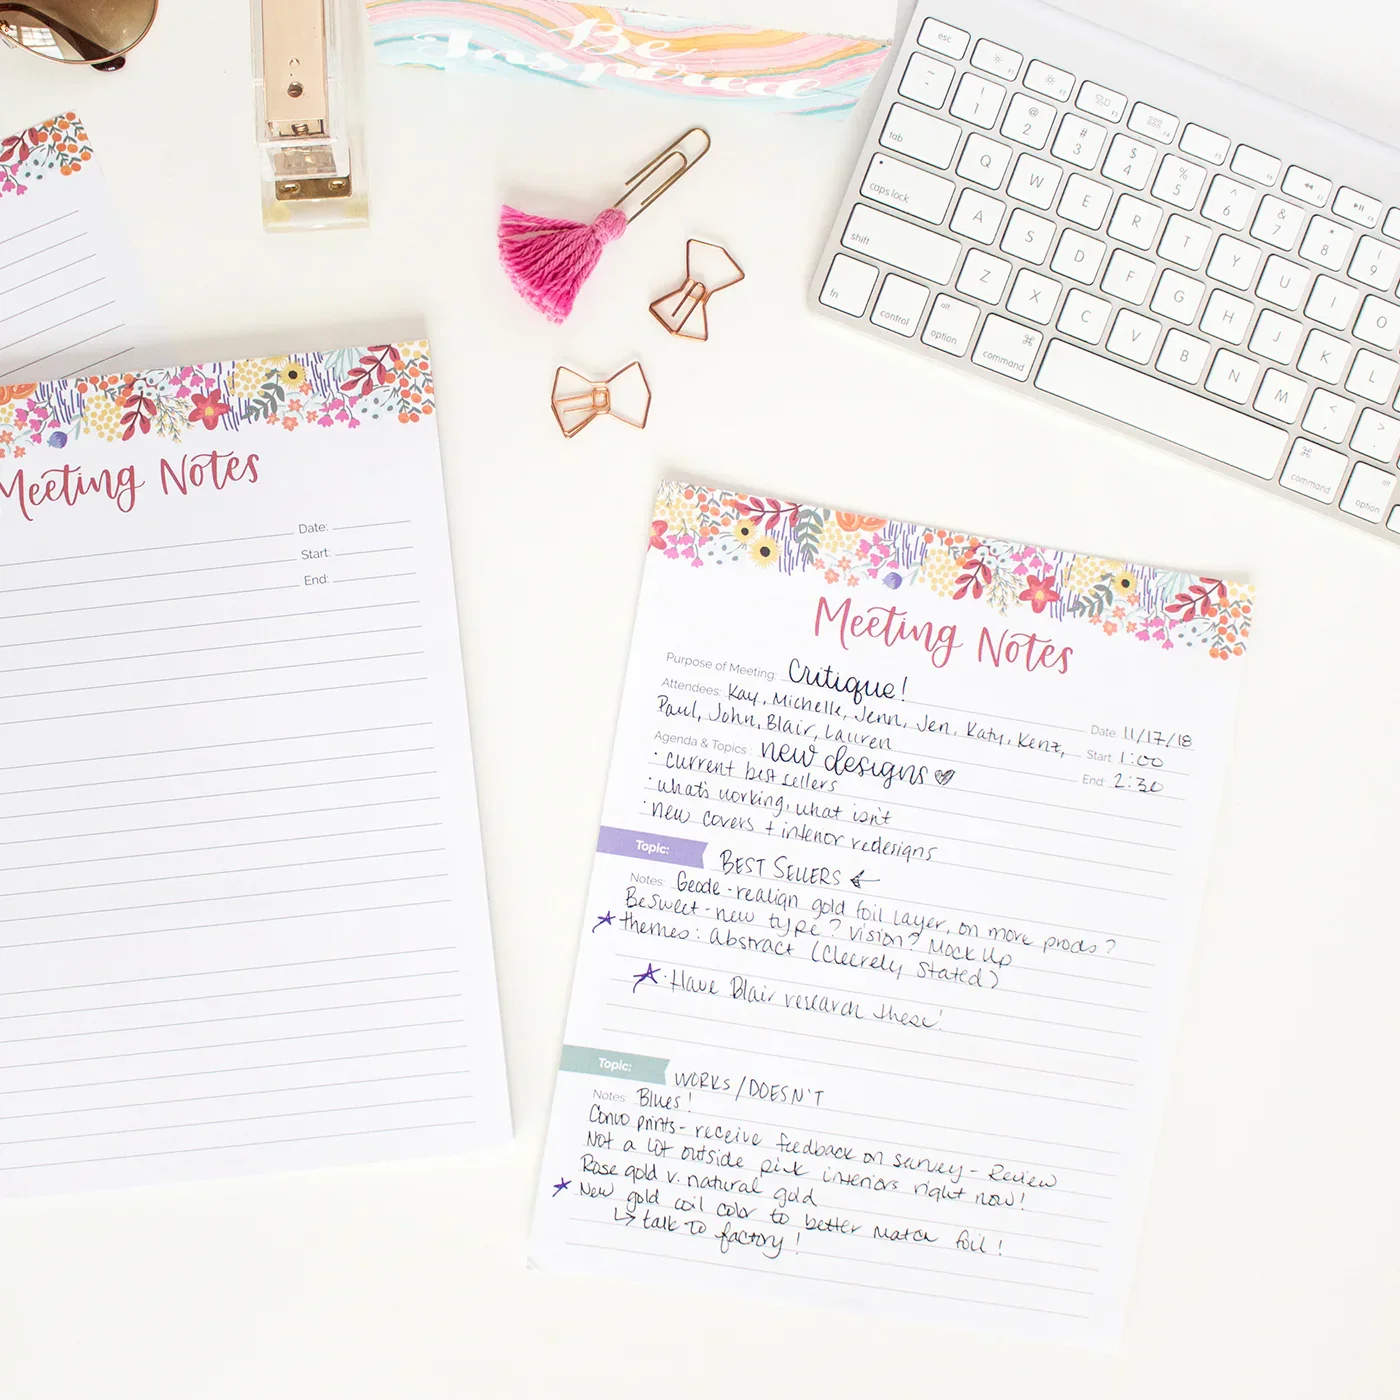 Be
Inspired
esc
F1
F2
F3
F4
F5
F6
! 1
@ 2
# 3
$ 4
% 5
^ 6
& 7
* 8
( 9
tab
Q W E R T Y U I O
caps lock
A S D F G H J K L
shift
Z X C V B N M < , > .
fn
control
alt option
⌘ command
⌘ command
alt option
Meeting Notes
Date:
Start:
End:
Meeting Notes
Purpose of Meeting: Critique!
Attendees: Kay, Michelle, Jenn, Jen, Katy, Kenz,
Paul, John, Blair, Lauren
Date: 11/17/18
Start: 1:00
End: 2:30
Agenda & Topics: new designs
· current best sellers
· what's working, what isn't
· new covers + interior redesigns
Topic: BEST SELLERS
Notes: Geode - realign gold foil layer, on more prods?
BeSweet - new type? Vision? Mock Up
themes: abstract (clecrely stated)
· Have Blair research these!
Topic: WORKS/DOESN'T
Notes: Blues!
Convo prints - receive feedback on survey - Review
Not a lot outside pink interiors right now!
Rose gold v. natural gold
New gold coil color to better match foil!
↳ talk to factory!